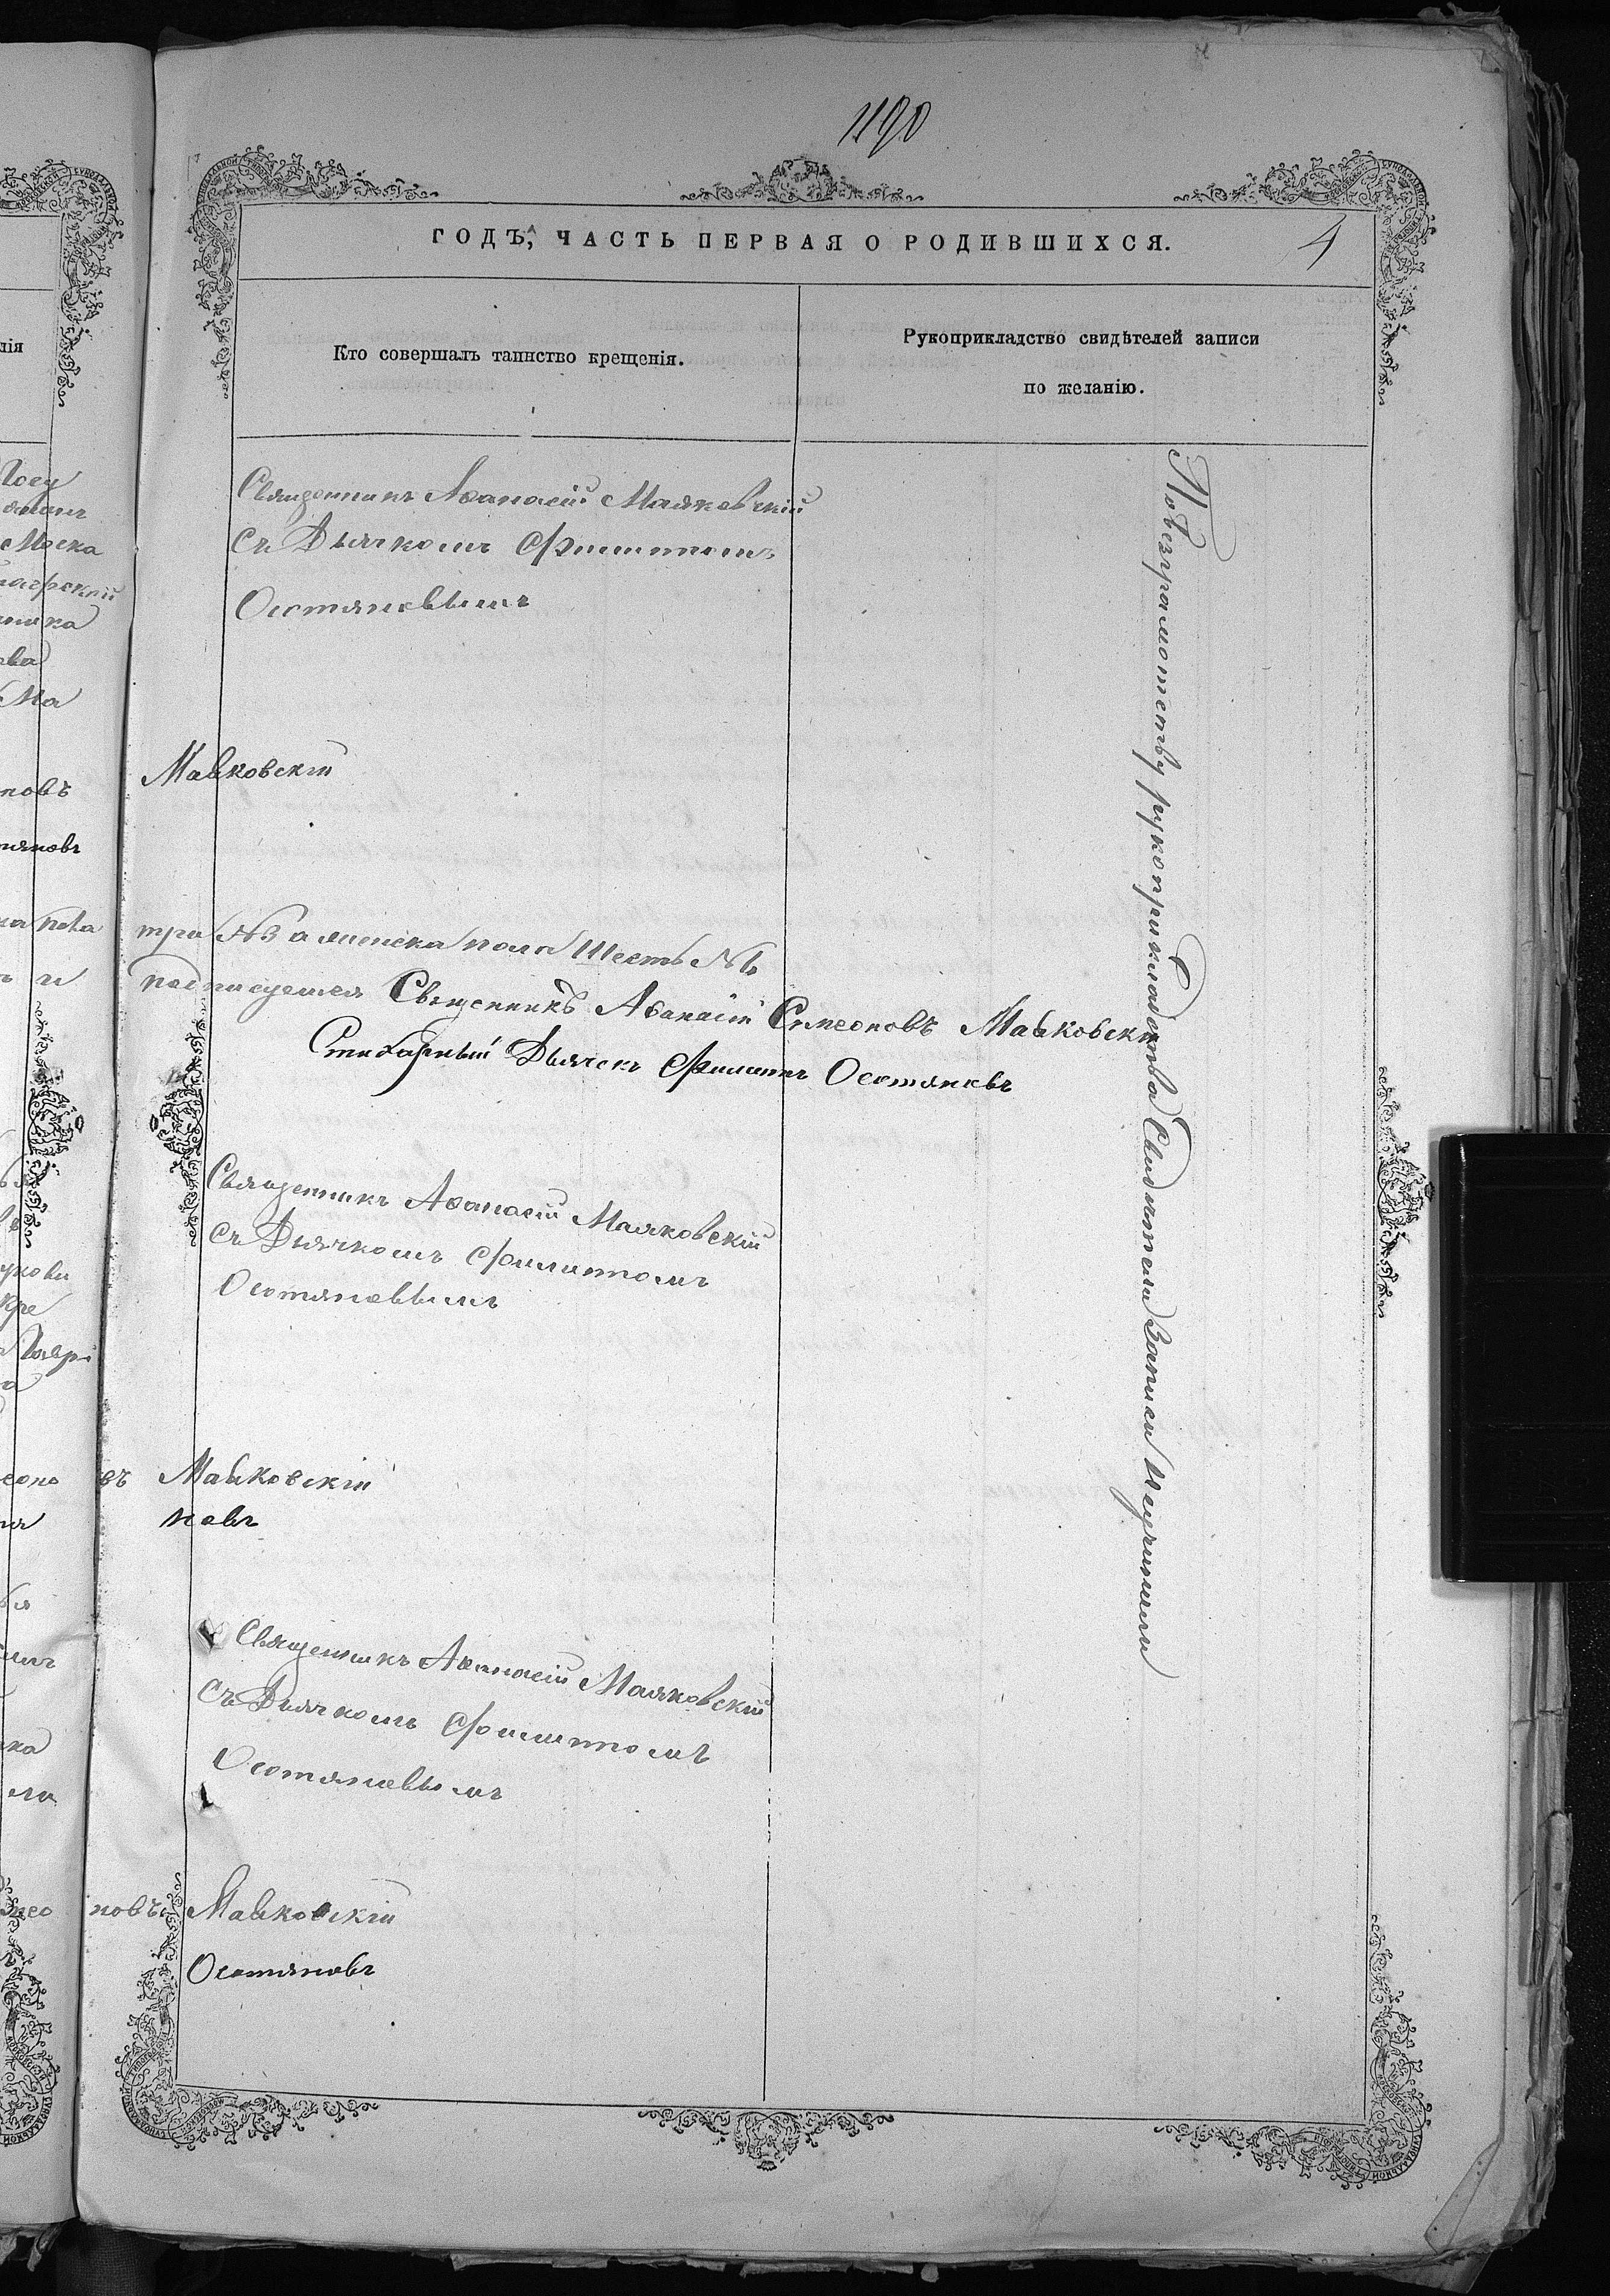 1190
ГОДЪ, ЧАСТЬ ПЕРВАЯ О РОДИВШИХСЯ.
4
Кто совершалъ таинство крещенія.
Рукоприкладство свидѣтелей записи
по желанію.
Священникъ Аѳанасій Маяковскій
съ Дьячкомъ Филиппомъ
Остяновымъ
Маяковскій
три №3 а женска пола Шесть №6
подписуемся Священникъ Аѳанасій Симеоновъ Маяковскій
Стихарный Дьячекъ Филиппъ Остяновъ
Священникъ Аѳанасій Маяковскій
съ Дьячкомъ Филиппомъ
Остяновымъ
въ Маяковскій
новъ
Священникъ Аѳанасій Маяковскій
съ Дьячкомъ Филиппомъ
Остяновымъ
новъ Маяковскій
Остяновъ
По безграмотству рукоприкладства Свидители Записи Неучинили